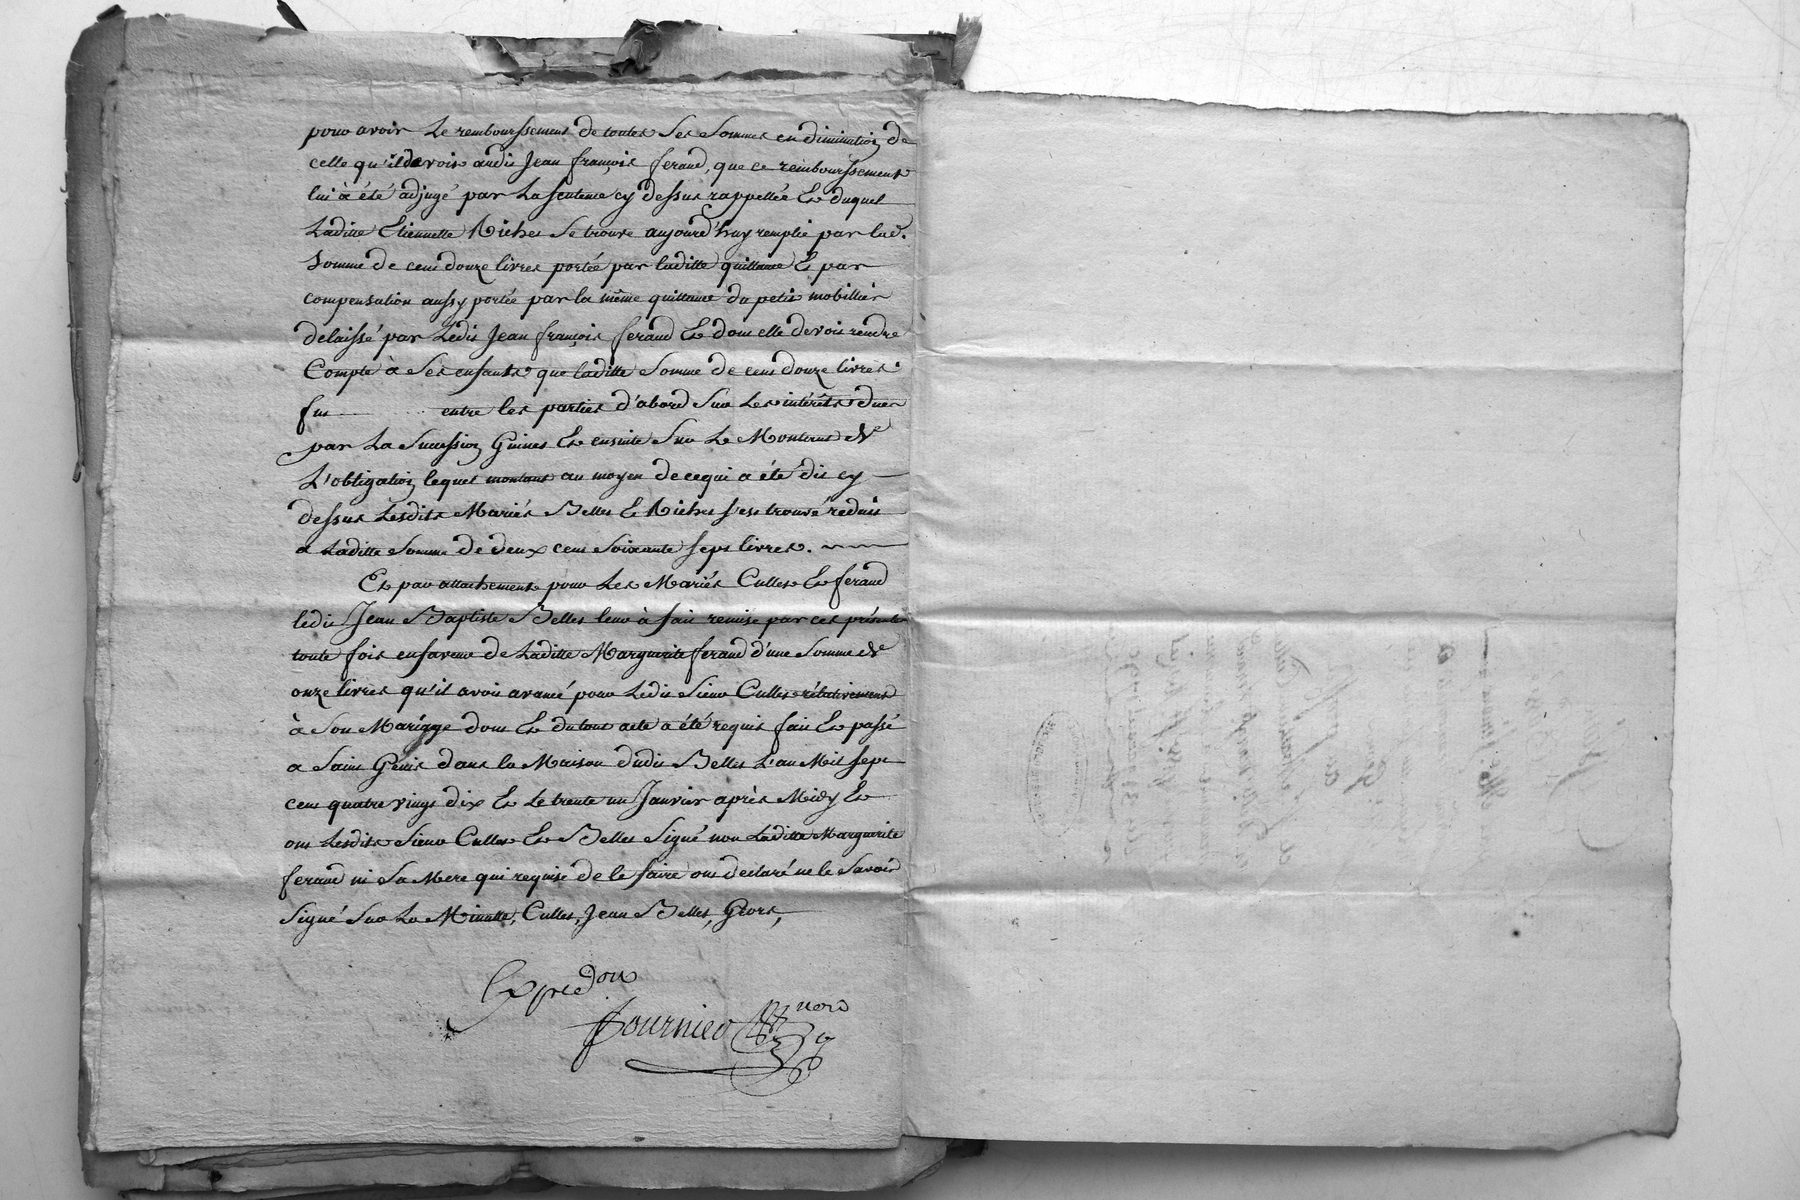 pour avoir Le remboursement de toutes Ses Sommes en diminution de
celle qu'il devoit audit Jean françois feraud, que ce remboursement
lui à été adjugé par La sentence cy dessus rappellée Et duquel
Laditte Etiennette Riches Se trouve aujourd'huy remplie par lad.
Somme de cent douze livres portée par laditte quittance Et par
compensation aussy portée par la même quittance du petit mobillier
délaissé par Ledit Jean françois feraud Et dont elle devoit rendre
Compte à Ses enfants que laditte Somme de cent douze livres
fut entre les parties d'abord Sur Les intérêts dues
par La Succession Et ensuite Sur Le Montant de
L'obligation lequel montant au moyen de ce qui a été dit cy
dessus Lesdits Mariés Belles Et Riches s'est trouvé réduit
a Laditte Somme de deux cent Soixante sept livres.
Et par attachement pour Les Mariés Culles Et feraud
ledit Jean Baptiste Belles leur à fait remise par ces présentes
toute fois en faveur de Laditte Marguerite feraud d'une Somme de
onze livres qu'il avoit avancé pour Ledit Sieur Culles rélativement
à Son Mariage dont Et du tout acte a été requis fait Et passé
a Saint Genis dans la Maison dudit Belles L'an Mil sept
cent quatre vingt dix Et Le trente un Janvier après Midy Et
ont Lesdits Sieur Culles Et Belles Signé non Laditte Marguerite
feraud ni Sa Mere qui requise de le faire ont declaré ne le Savoir
Signé Sur La Minutte, Culles, Jean Belles,
Expedon
fournier nore